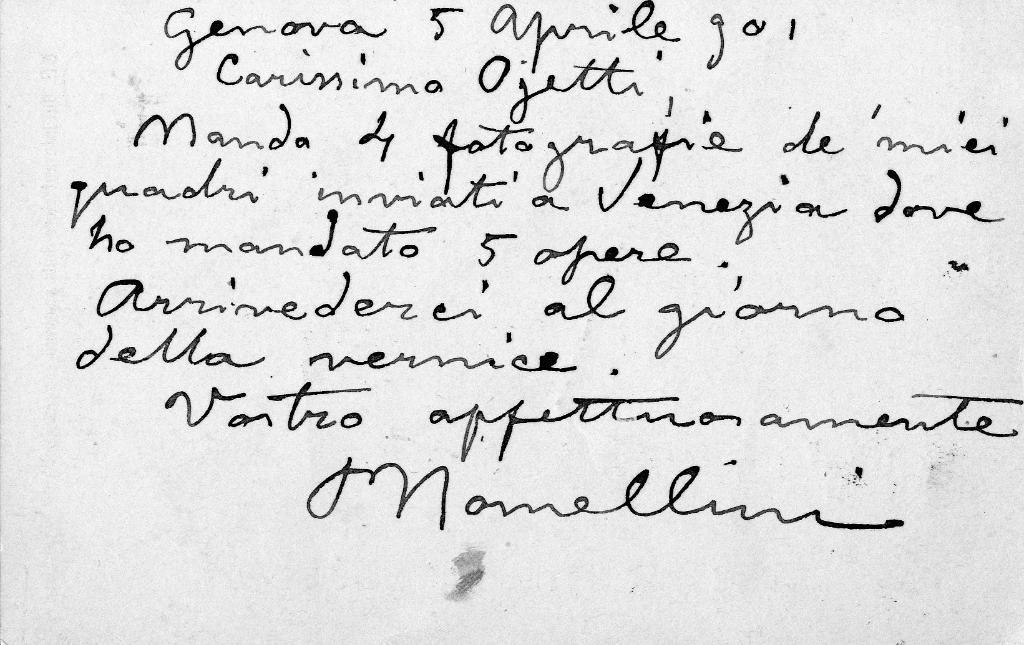 Genova 5 Aprile 901
Carissimo Ojetti,
Mando 4 fotografie de' miei
quadri inviati a Venezia dove
ho mandato 5 opere.
Arrivederci al giorno
della vernice.
Vostro affettuosamente
PNomellini